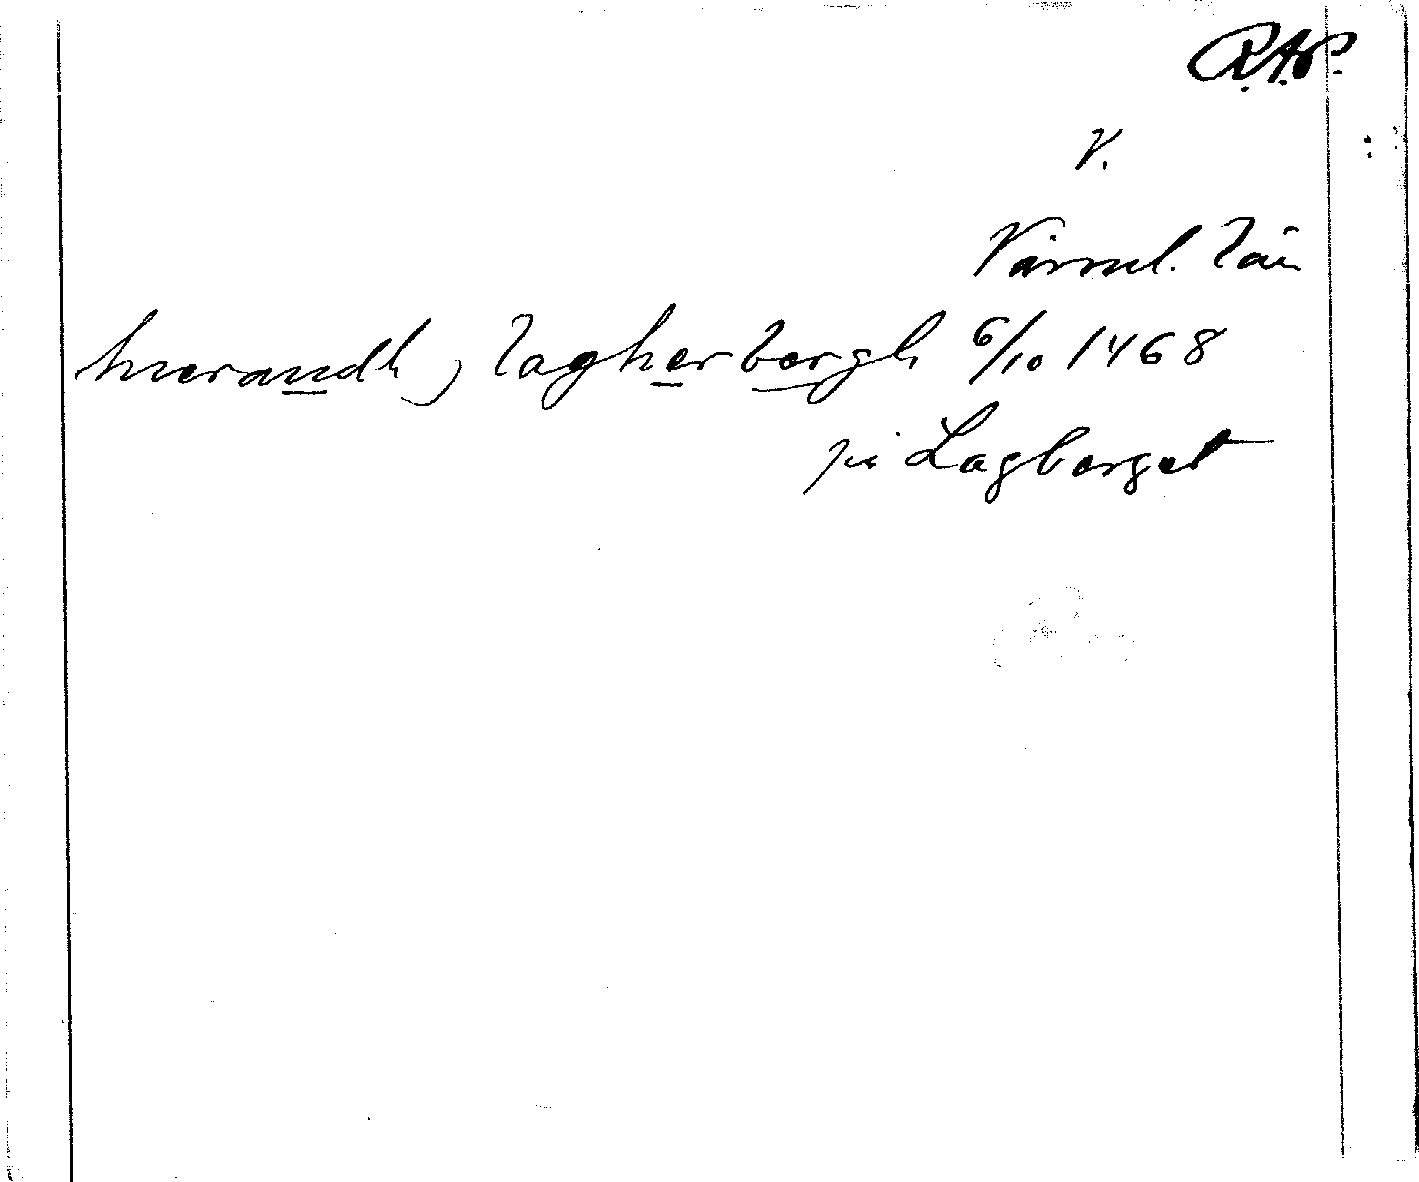 R.A.P.
V.
Värml. län
huerandh, lagherbergh 6/10 1468
på Lagberget